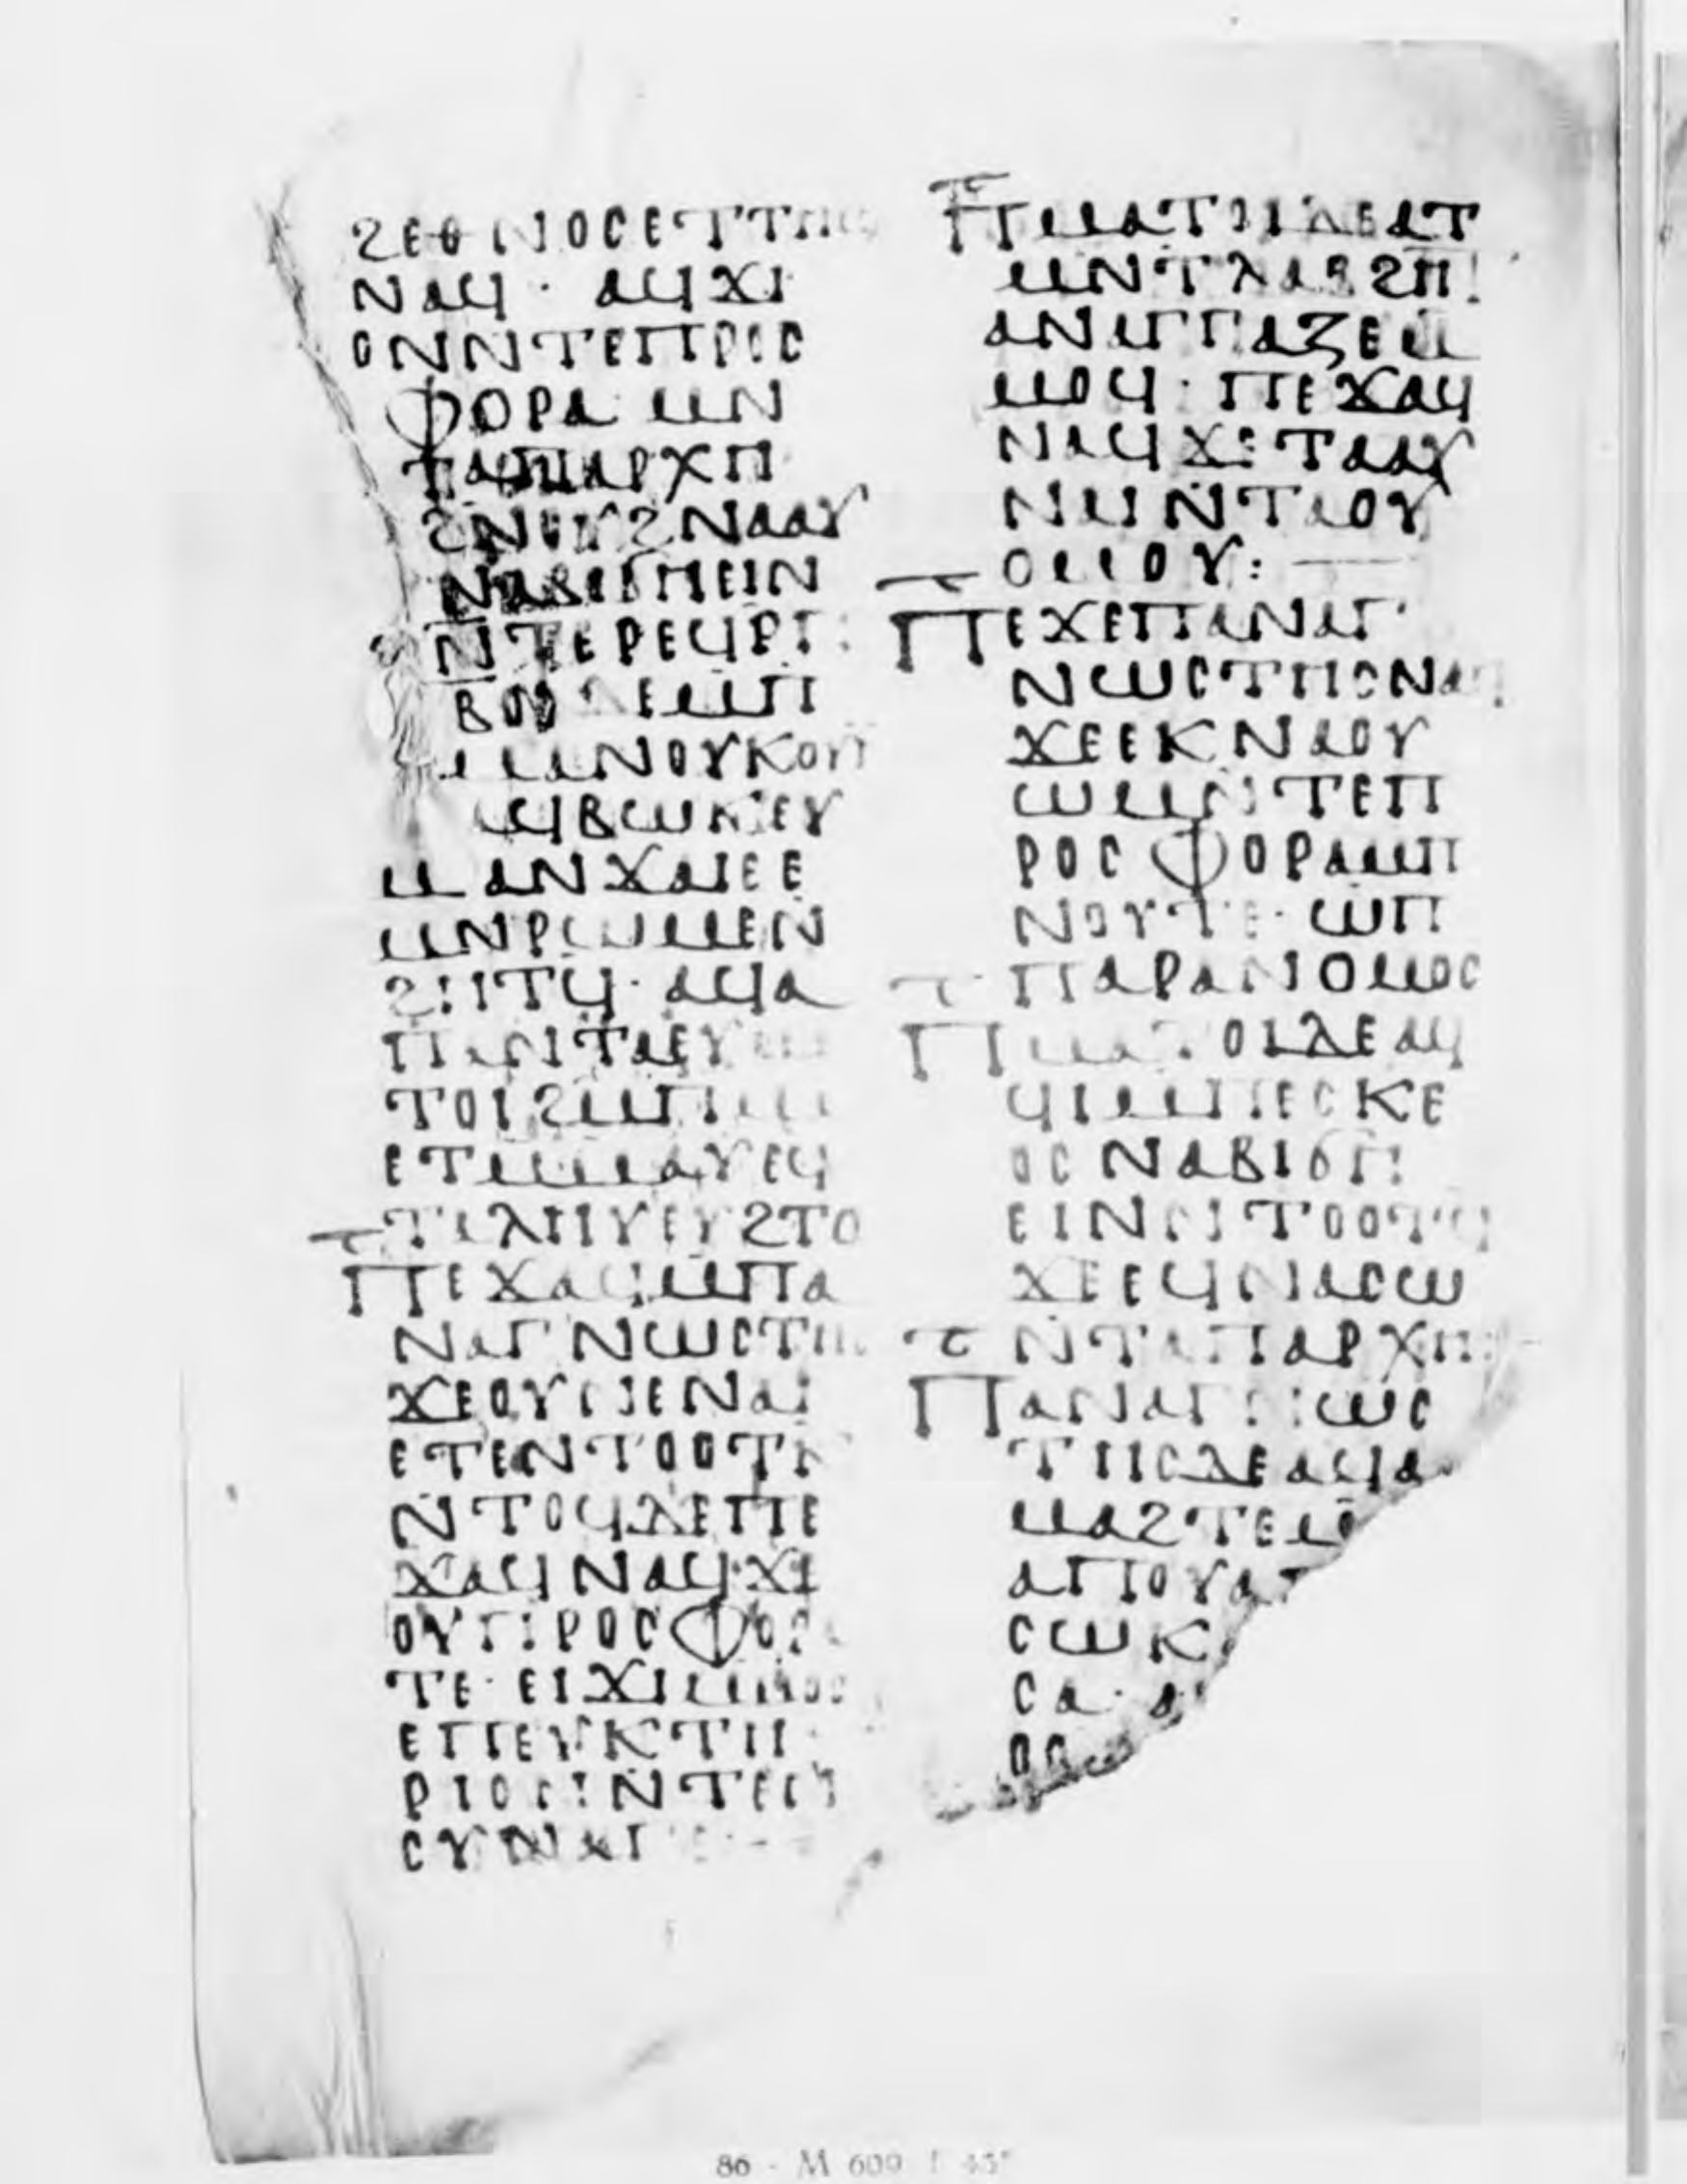 ϩⲉⲑⲛⲟⲥⲉⲧⲧⲏϣ
ⲛⲁϥ· ⲁϥϫⲓ
ⲟⲛⲛⲧⲉⲡⲣⲟⲥ
ⲫⲟⲣⲁ ⲙⲛ
ⲧⲁⲡⲁⲣⲭⲏ
ϩⲛⲟⲩϩⲛⲁⲁⲩ
ⲛⲁⲃⲓϭⲏⲉⲓⲛ
ⲛⲧⲉⲣⲉϥⲣⲡ
ⲃⲟⲗ ⲇⲉⲙⲡ
ⲙⲁⲛⲟⲩⲕⲟⲩⲓ
ⲁϥⲃⲱⲕⲉⲩ
ⲙⲁⲛϫⲁⲓⲉⲉ
ⲙⲛⲣⲱⲙⲉⲛ
ϩⲏⲧϥ· ⲁϥⲁ
ⲡⲁⲛⲧⲁⲉⲩⲙⲁ
ⲧⲟⲓϩⲙⲡⲙⲁ
ⲉⲧⲙⲙⲁⲩⲉϥ
ⲧⲁⲗⲏⲩⲉⲩϩⲧⲟ
ⲡⲉϫⲁϥⲙⲡⲁ
ⲛⲁⲅⲛⲱⲥⲧⲏⲥ
ϫⲉⲟⲩⲛⲉⲛⲁⲓ
ⲉⲧⲉⲛⲧⲟⲟⲧⲕ
ⲛⲧⲟϥⲇⲉⲡⲉ
ϫⲁϥⲛⲁϥϫⲉ
ⲟⲩⲡⲣⲟⲥⲫⲟⲣⲁ
ⲧⲉ· ⲉⲓϫⲓⲙⲙⲟⲥ
ⲉⲡⲉⲩⲕⲧⲏ
ⲣⲓⲟⲛⲛⲧⲉⲥⲩ
ⲥⲩⲛⲁⲅ
ⲡⲙⲁⲧⲟⲓⲇⲉⲁⲧ
ⲙⲛⲧⲗⲁⲃϩⲏⲧ
ⲁⲛⲁⲅⲅⲁⲍⲉⲙ
ⲙⲟϥ· ⲡⲉϫⲁϥ
ⲛⲁϥϫⲉⲧⲁⲁⲩ
ⲛⲁⲓⲛⲧⲁⲟⲩ
ⲟⲙⲟⲩ:
ⲡⲉϫⲉⲡⲁⲛⲁⲅ
ⲛⲱⲥⲧⲏⲥⲛⲁϥ
ϫⲉⲉⲕⲛⲁⲟⲩ
ⲱⲙⲛⲧⲉⲡ
ⲣⲟⲥⲫⲟⲣⲁⲙⲡ
ⲛⲟⲩⲧⲉ· ⲱⲡ
ⲡⲁⲣⲁⲛⲟⲙⲟⲥ
ⲡⲙⲁⲧⲟⲓⲇⲉⲁϥ
ϥⲓⲙⲡⲉⲥⲕⲉ
ⲟⲥ ⲛⲁⲃⲓϭⲏ
ⲉⲓⲛⲛⲧⲟⲟⲧϥ
ϫⲉⲉϥⲛⲁⲥⲱ
ⲛⲧⲁⲡⲁⲣⲭⲏ:
ⲡⲁⲛⲁⲅⲛⲱⲥ
ⲧⲏⲥⲇⲉⲁϥⲁ
ⲙⲁϩⲧⲉⲙ
ⲁⲡⲟⲩⲁ
ⲥⲱⲕ
ⲥⲁ· ⲁ
ⲟⲥ
86 - M 609 f 45ᵛ